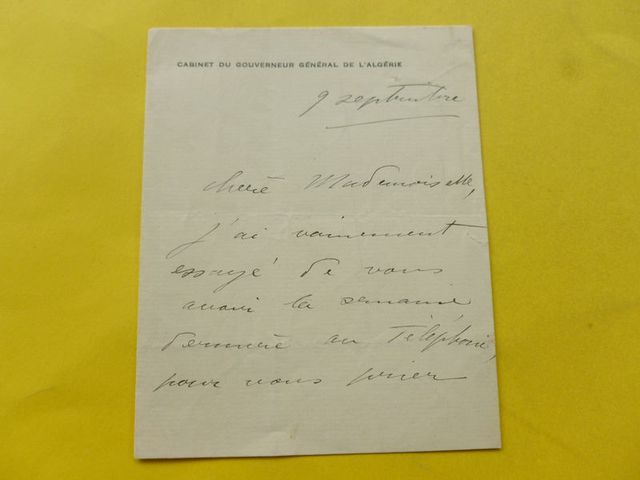 CABINET DU GOUVERNEUR GÉNÉRAL DE L'ALGÉRIE
9 septembre
Chère Mademoiselle,
j'ai vainement
essayé de vous
avoir la semaine
dernière au Téléphone,
pour vous prier